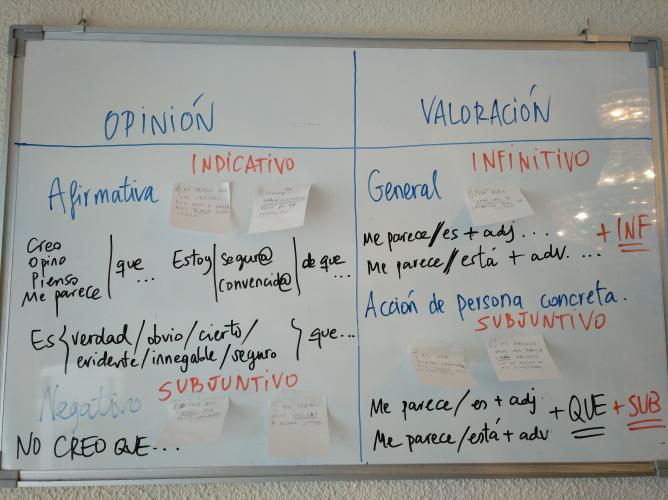 OPINIÓN
INDICATIVO
Afirmativa
Creo
Opino
Pienso
Me parece
que...
Estoy
segur@
convencid@
de que
...
Es
verdad/obvio/cierto/
evidente/innegable/seguro
que...
SUBJUNTIVO
Negativo
NO CREO QUE...
VALORACIÓN
INFINITIVO
General
Me parece/es + adj ...
Me parece/está + adv. ...
+ INF
Acción de persona concreta.
SUBJUNTIVO
Me parece/es + adj.
Me parece/está + adv
+ QUE + SUB